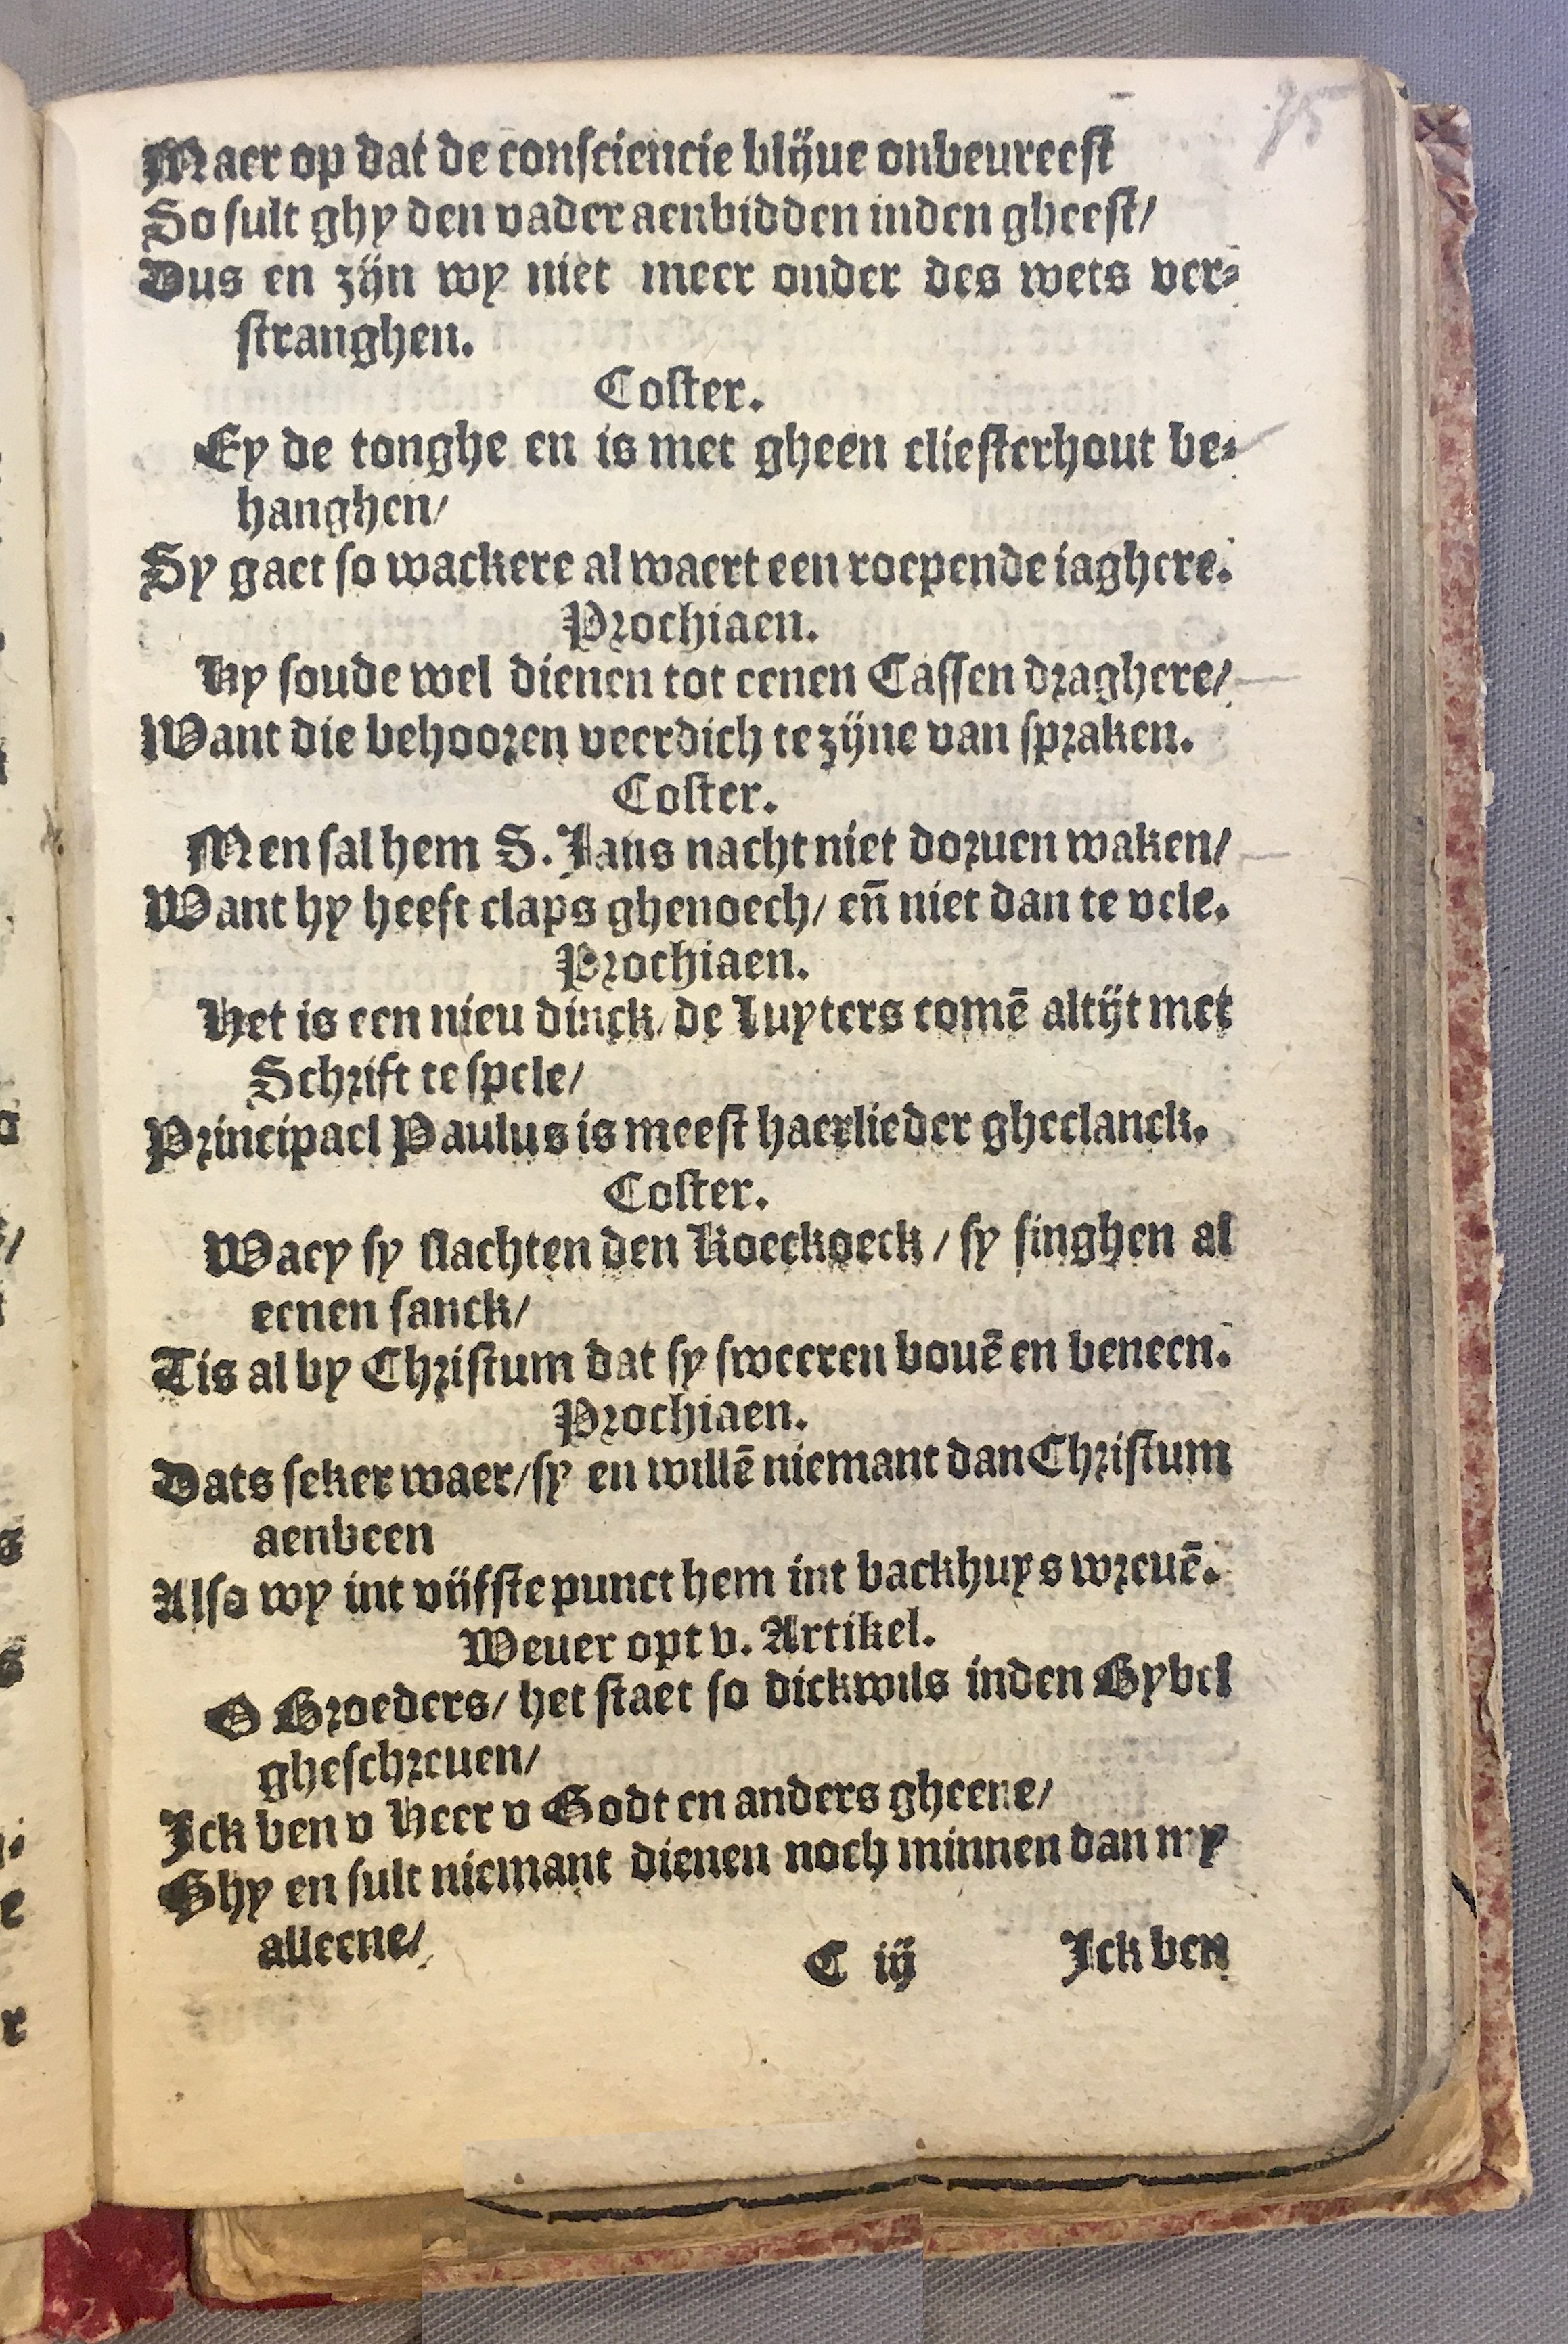 35
Maer op dat de consciencie blijue onbeureest
So sult ghy den vader aenbidden inden gheest/
Dus en zijn wy niet meer onder des wets ver-
stranghen.
Coster.
Ey de tonghe en is met gheen cliesterhout be-
hanghen/
Sy gaet so wackere al waert een roepende iaghere.
Prochiaen.
Hy soude wel dienen tot eenen Cassen draghere/
Want die behooren veerdich te zijne van spraken.
Coster.
Men sal hem S. Jans nacht niet doruen waken/
Want hy heeft claps ghenoech/ en̄ niet dan te vele.
Prochiaen.
Het is een nieu dinck/ de Luyters comē altijt met
Schrift te spele/
Principael Paulus is meest haerlieder gheclanck.
Coster.
Waey sy slachten den Koeckoeck/ sy singhen al
eenen sanck/
Tis al by Christum dat sy sweeren bouē en beneen.
Prochiaen.
Dats seker waer/ sy en willē niemant dan Christum
aenbeen
Also wy int vijfste punct hem int backhuys wreuē.
Weuer opt v. Artikel.
O Broeders/ het staet so dickwils inden Bybel
gheschreuen/
Ick ben v Heer v Godt en anders gheene/
Ghy en sult niemant dienen noch minnen dan my
alleene/
C iij Ick ben